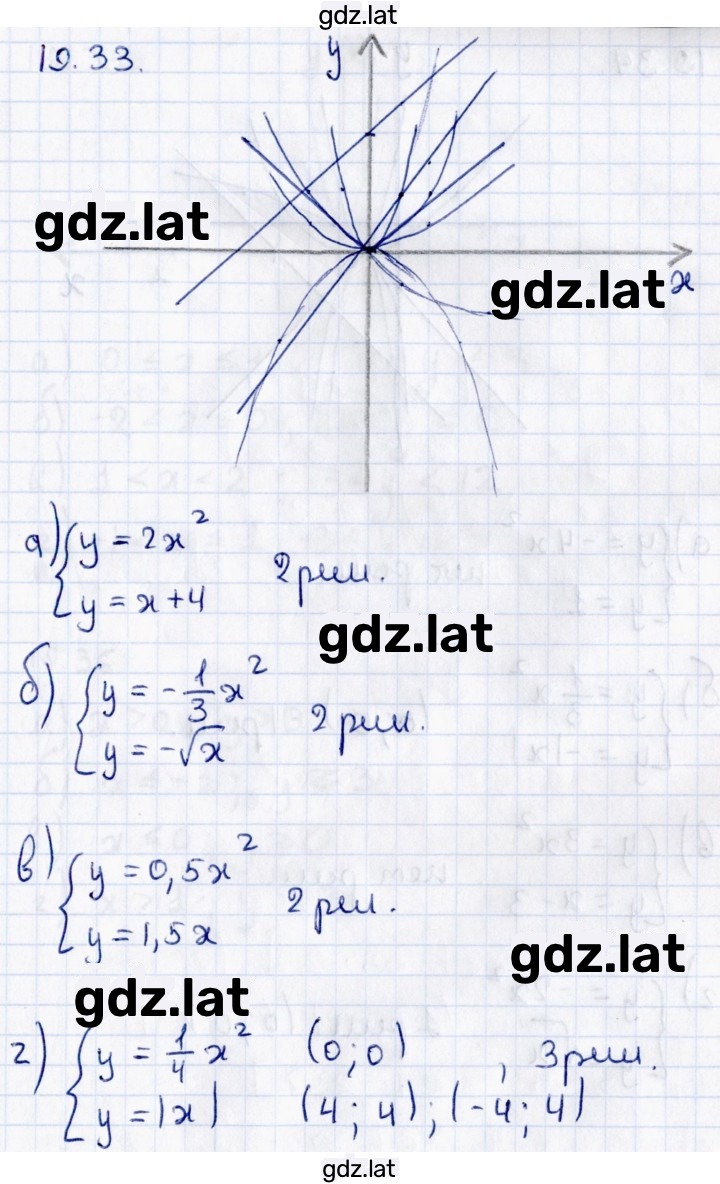 gdz.lat
19.33.
y
gdz.lat
gdz.lat
x
а) { y = 2x²
y = x+4
2 реш.
gdz.lat
б) { y = -1/3 x²
y = -√x
2 реш.
в) { y = 0,5x²
y = 1,5x
2 реш.
gdz.lat
gdz.lat
г) { y = 1/4 x² (0; 0)
y = |x| (4; 4); (-4; 4), 3 реш.
gdz.lat